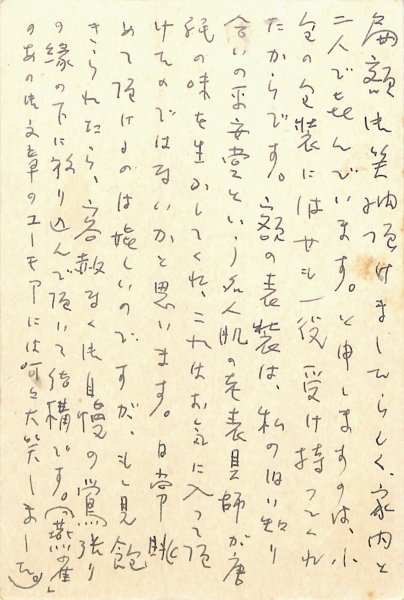 扁額御笑納頂けましたらしく、家内と
二人で喜んでいます。と申しますのは、小
包の包装にはせも一役受け持ってくれ
たからです。額の表装は、私の知り
合いの平安堂という名人肌の老表具師が唐
紙の味を生かしてくれ、これはお気に入って頂
けたのではないかと思います。日常眺
めて頂けるのは嬉しいのですが、もし見飽
きられたら、容赦なく御自慢の鴬張り
の縁の下に放り込んで頂いて結構です。(「燕雀」
のあの御文章のユーモアには呵々大笑しました。)